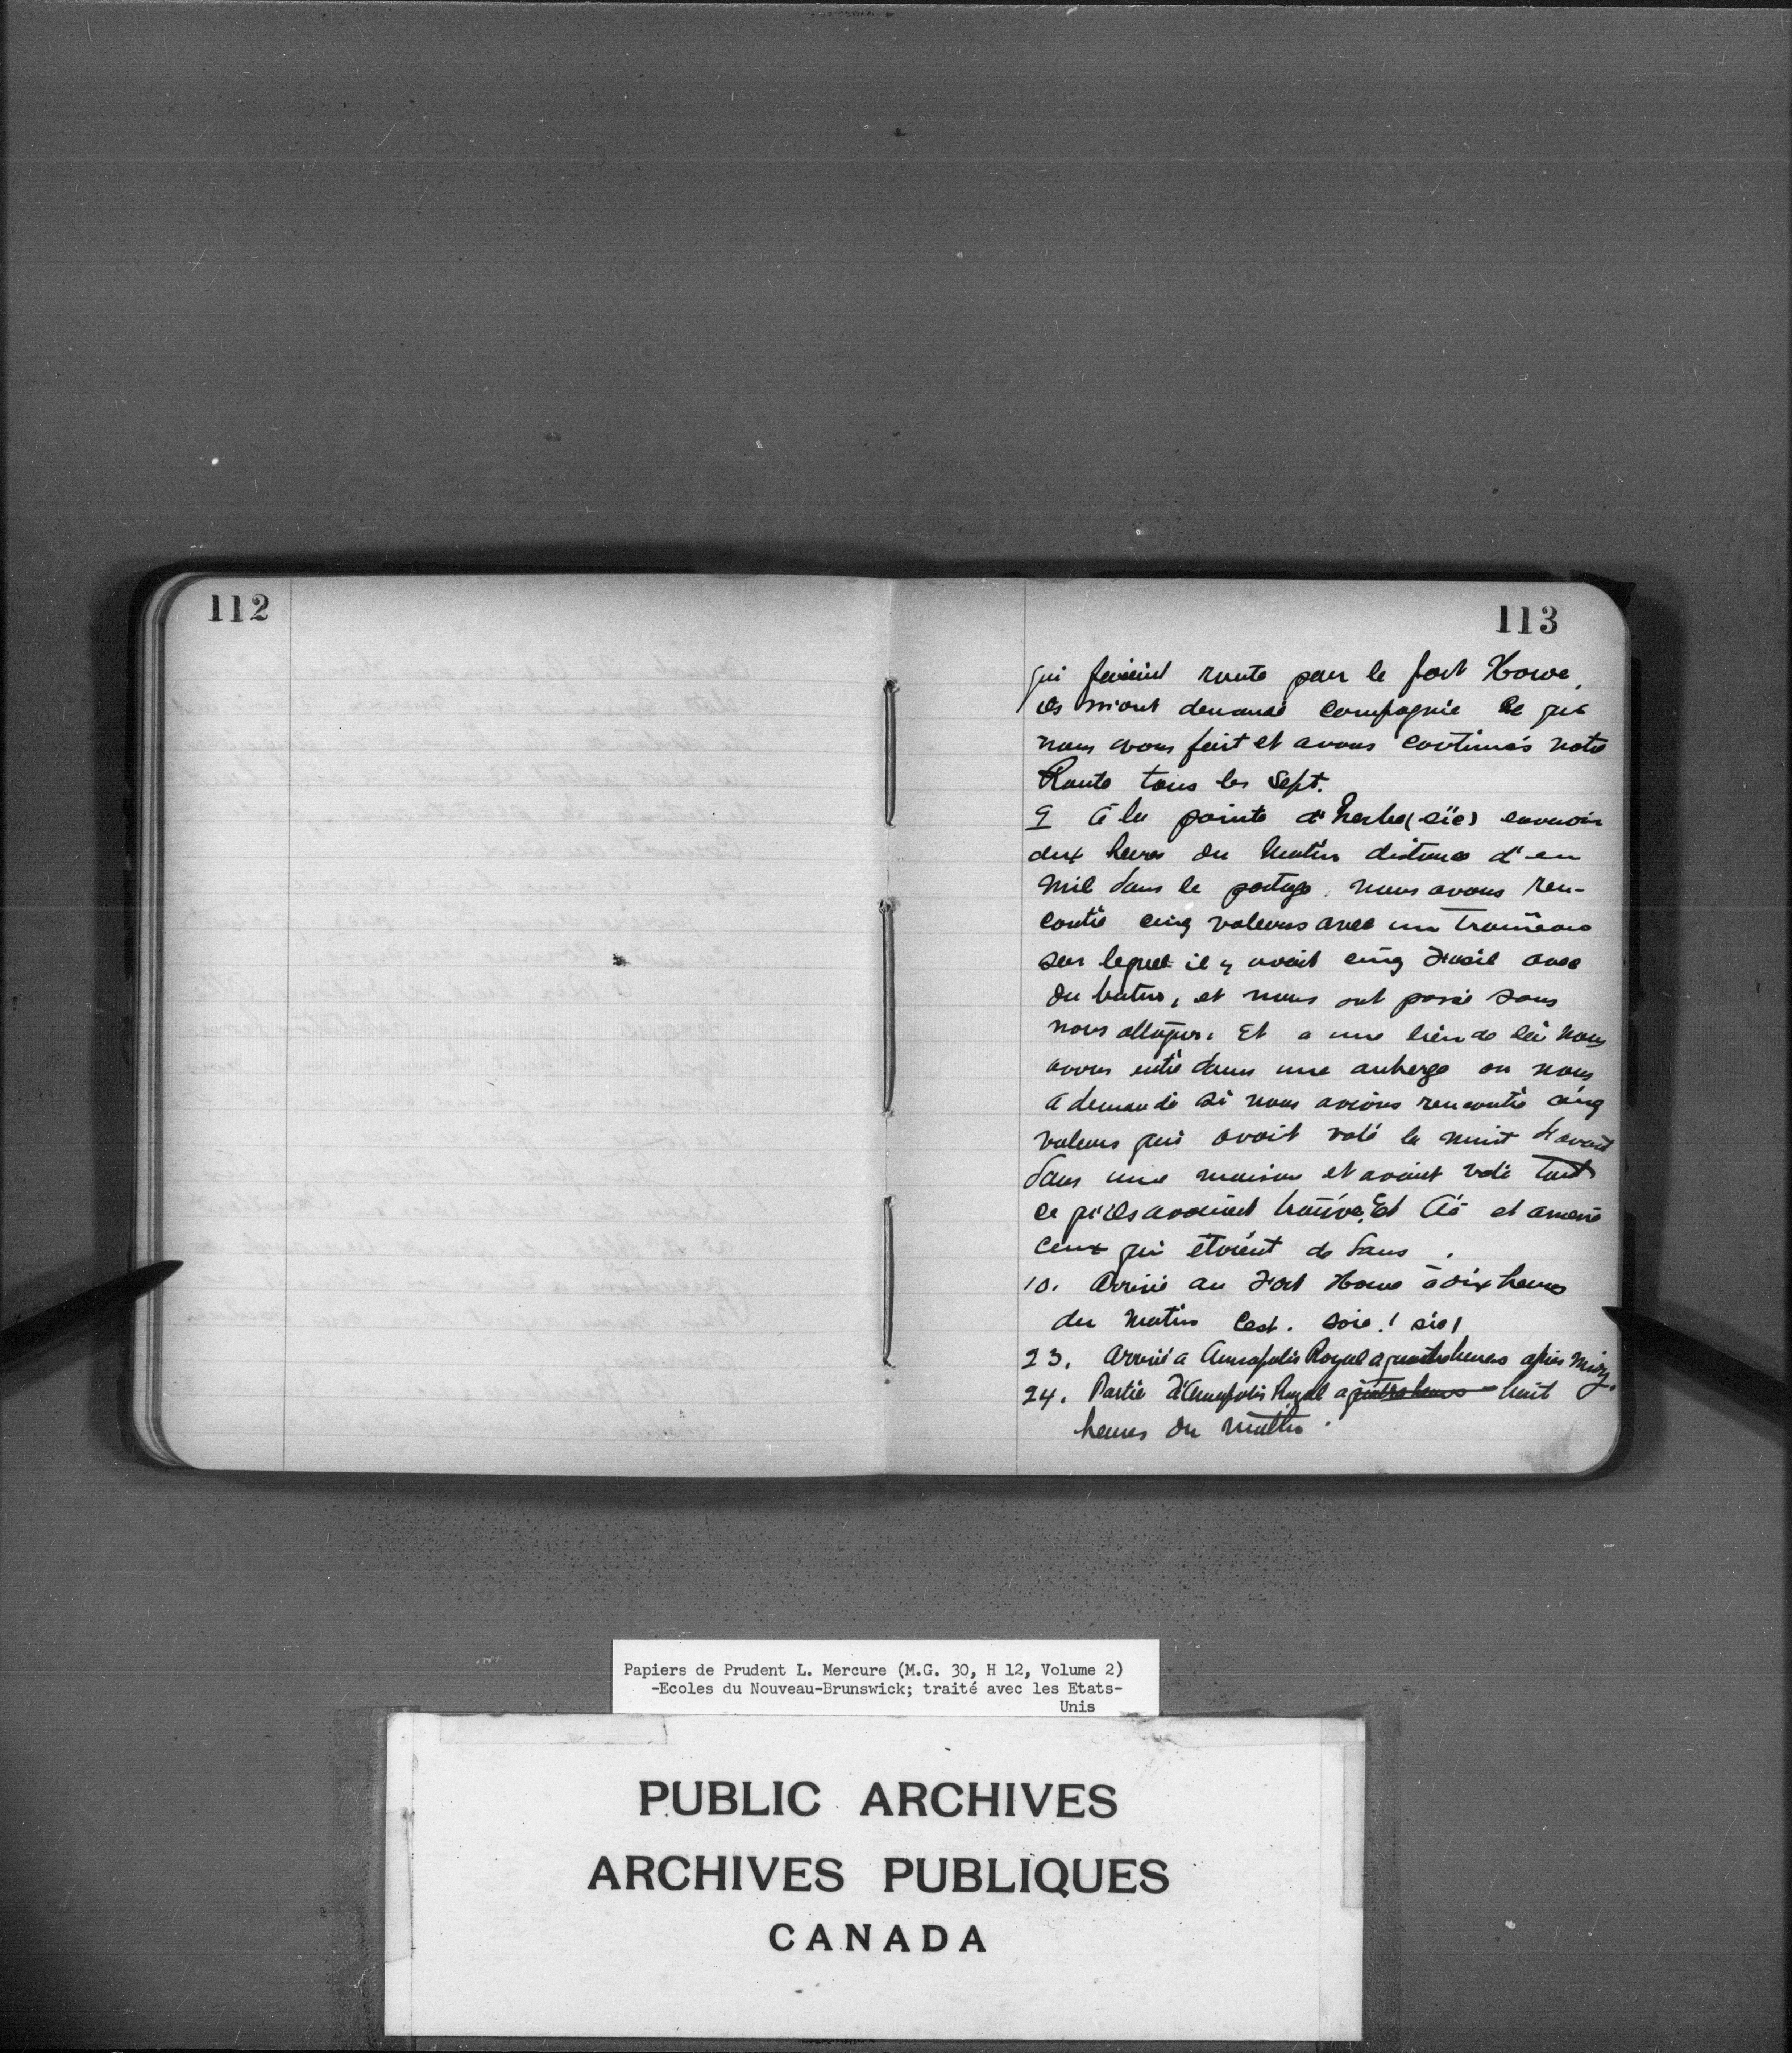 112
113
qui faisient route pour le fort Howe,
ils m'ont demandé compagnie ce que
nous avons fait et avons continués notre
Route tous les Sept.
9 à la pointe d'herbe (sic) environ
deux heures du matin distance d'un
mil dans le portage. nous avons ren-
contré cinq voleurs avec un traineau
sur lequel il y avait cinq Fusil avec
du butin, et nous ont passé sans
nous attaquer. Et a une lieu de là nous
avons entré dans une auberge on nous
a demandé si nous avions rencontré cinq
voleurs qui avait volé la nuit d'avant
dans une maison et avaint volé tout
ce qu'ils avoient trouvé. Et lié et amené
ceux qui étoient de dans.
10. Arrivé au Fort Howe à dix heures
du matin C'est. soir! sic!
23. Arrivé a Annapolis Royal a quatre heures après Midy.
24. Partie d'Annapolis Royal a quatre heures huit
heures du matin.
Papiers de Prudent L. Mercure (M.G. 30, H 12, Volume 2)
-Ecoles du Nouveau-Brunswick; traité avec les Etats-
Unis
PUBLIC ARCHIVES
ARCHIVES PUBLIQUES
CANADA